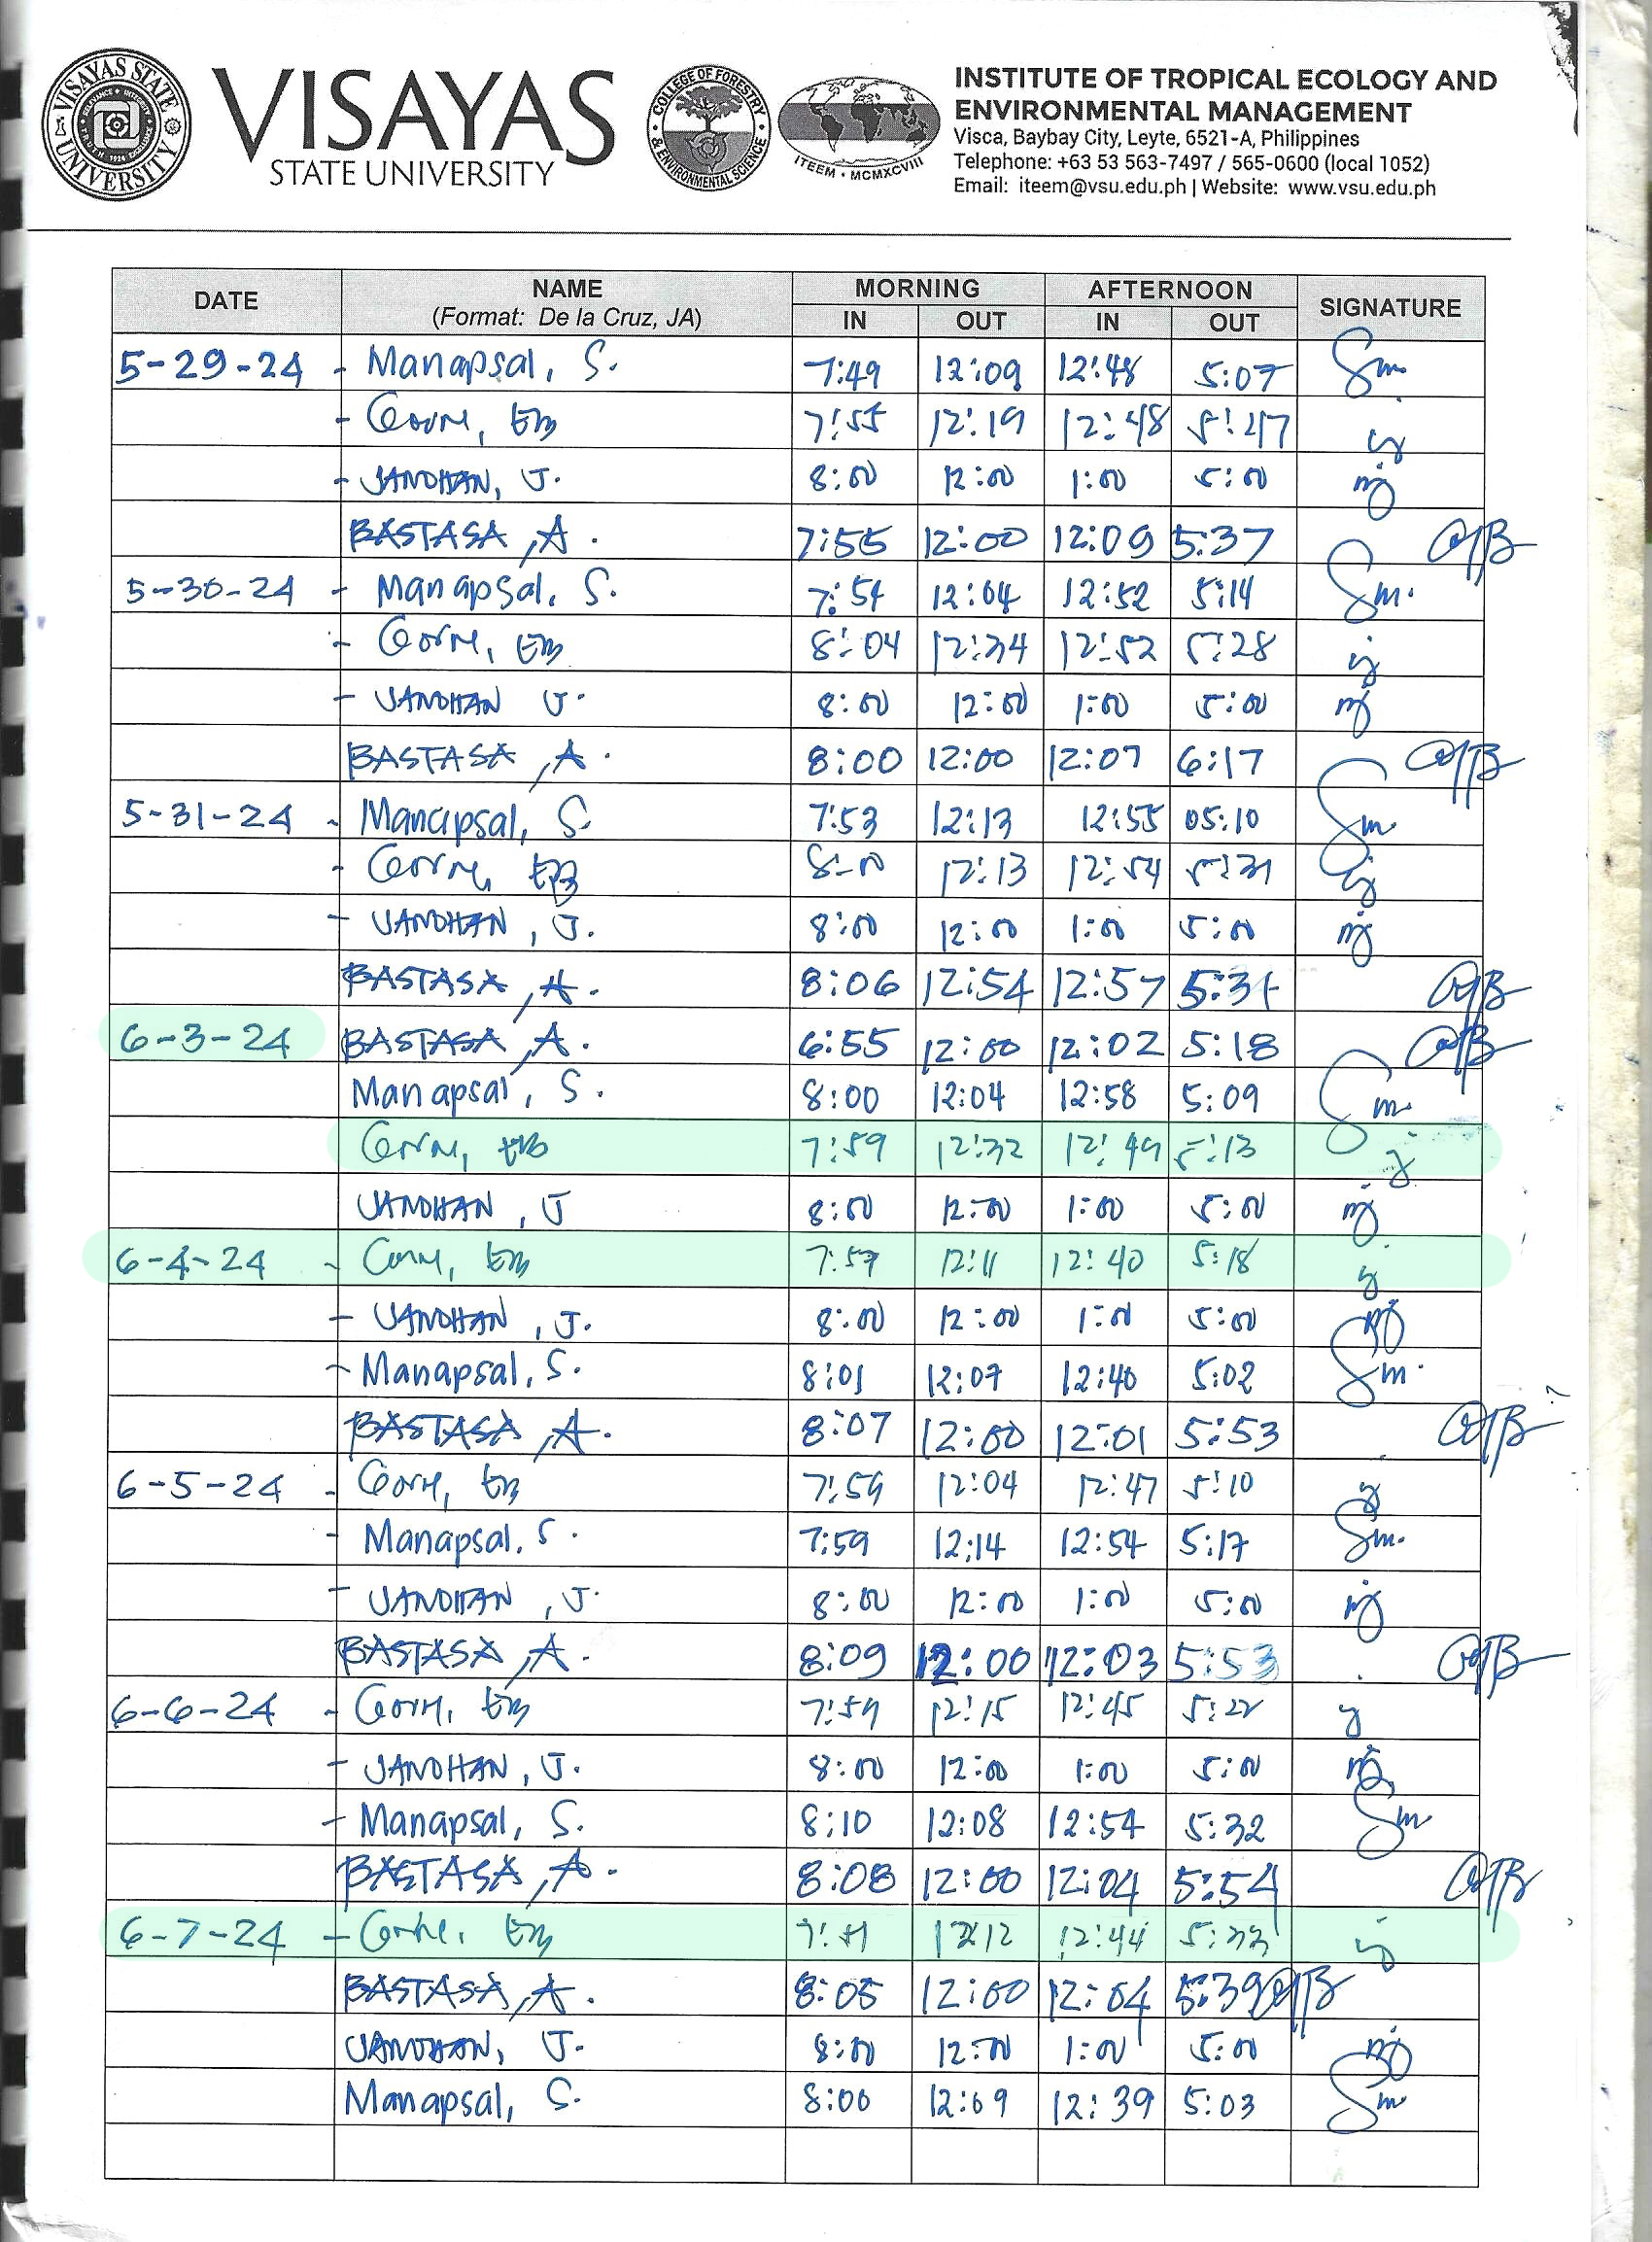 VISAYAS STATE UNIVERSITY
VISAYAS
STATE UNIVERSITY
COLLEGE OF FORESTRY & ENVIRONMENTAL SCIENCE
ITEEM • MCMXCVIII
INSTITUTE OF TROPICAL ECOLOGY AND
ENVIRONMENTAL MANAGEMENT
Visca, Baybay City, Leyte, 6521-A, Philippines
Telephone: +63 53 563-7497 / 565-0600 (local 1052)
Email: iteem@vsu.edu.ph | Website: www.vsu.edu.ph
DATE NAME MORNING AFTERNOON SIGNATURE
(Format: De la Cruz, JA) IN OUT IN OUT
5-29-24 - Manapsal, S. 7:49 12:09 12:48 5:07 Sm
- 7:55 12:19 12:48 5:47
- JANDHAN, J. 8:00 12:00 1:00 5:00
BASTASA, A. 7:55 12:00 12:09 5:37
5-30-24 - Manapsal, S. 7:54 12:04 12:52 5:14 Sm.
- 8:04 12:34 12:52 5:28
- JANDHAN J. 8:00 12:00 1:00 5:00
BASTASA, A. 8:00 12:00 12:07 6:17
5-31-24 - Manapsal, S. 7:53 12:13 12:55 05:10 Sm
- 8:00 12:13 12:54 5:31
- JANDHAN, J. 8:00 12:00 1:00 5:00
BASTASA, A. 8:06 12:54 12:57
6-3-24 BASTASA, A. 6:55 12:00 12:02 5:18
Manapsal, S. 8:00 12:04 12:58 5:09 Sm
7:59 12:32 12:49 5:13
JANDHAN, J 8:00 12:00 1:00 5:00
6-4-24 - 7:57 12:11 12:40 5:18
- JANDHAN, J. 8:00 12:00 1:00 5:00
- Manapsal, S. 8:01 12:07 12:40 5:02 Sm.
BASTASA, A. 8:07 12:00 12:01 5:53
6-5-24 - 7:59 12:04 12:47 5:10
- Manapsal, S. 7:59 12:14 12:54 5:17 Sm.
- JANDHAN, J. 8:00 12:00 1:00 5:00
BASTASA, A. 8:09 12:00 12:03 5:53
6-6-24 - 7:59 12:15 12:45 5:22
- JANDHAN, J. 8:00 12:00 1:00 5:00
- Manapsal, S. 8:10 12:08 12:54 5:32 Sm
BASTASA, A. 8:08 12:00 12:04 5:54
6-7-24 - 12:12 12:44 5:33
BASTASA, A. 8:05 12:00 12:04 5:39
JANDHAN, J. 8:00 12:00 1:00 5:00
Manapsal, S. 8:00 12:09 12:39 5:03 Sm